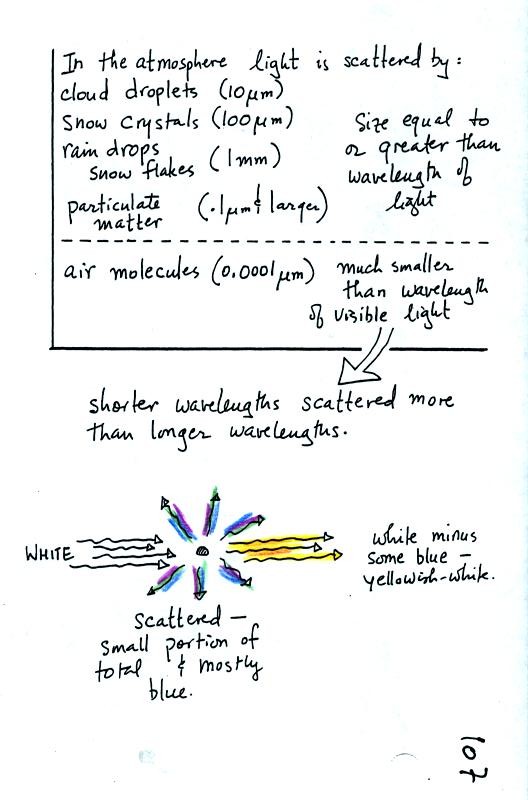 In the atmosphere light is scattered by:
cloud droplets (10 μm)
Snow crystals (100 μm)
rain drops
snow flakes (1mm)
particulate
matter (.1μm & larger)
Size equal to
or greater than
wavelength of
light
air molecules (0.0001 μm)
much smaller
than wavelength
of visible light
shorter wavelengths scattered more
than longer wavelengths.
WHITE
white minus
some blue –
yellowish-white.
scattered –
small portion of
total & mostly
blue.
107